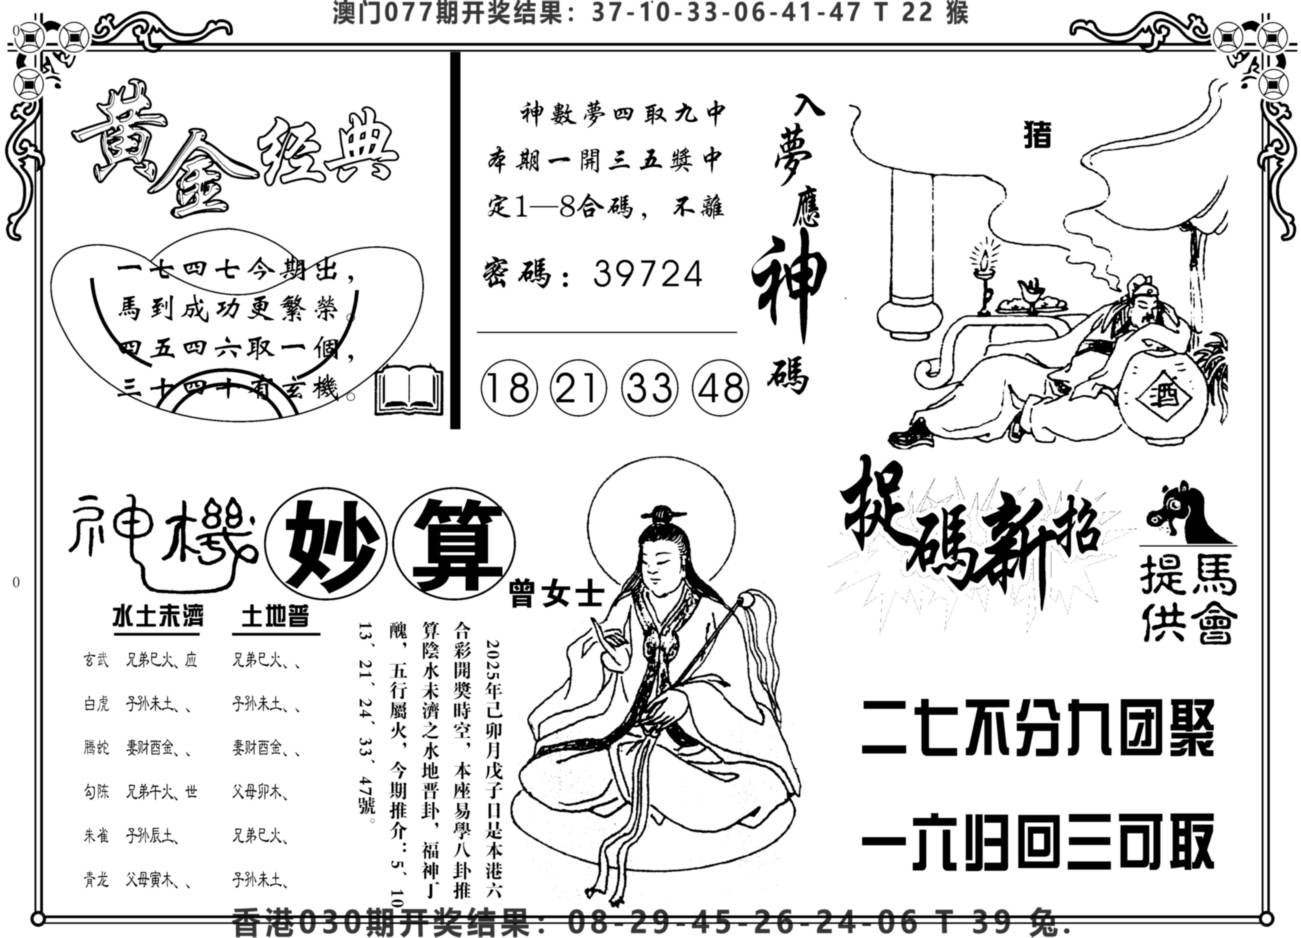 澳门077期开奖结果：37-10-33-06-41-47 T 22 猴
黄金经典
一七四七今期出，
馬到成功更繁榮。
四五四六取一個，
三十四十有玄機。
神數夢四取九中
本期一開三五獎中
定1—8合碼，不離
密碼：39724
18 21 33 48
入夢應神碼
猪
酒
神機妙算
曾女士
水土未濟 土地晋
玄武 兄弟巳火、应 兄弟巳火、、
白虎 子孙未土、、 子孙未土、、
腾蛇 妻财酉金、、 妻财酉金、、
勾陈 兄弟午火、世 父母卯木、
朱雀 子孙辰土、 兄弟巳火、
青龙 父母寅木、、 子孙未土、
2025年己卯月戊子日是本港六
合彩開獎時空，本座易學八卦推
算陰水未濟之水地晋卦，福神丁
醜，五行屬火，今期推介：5、10
13、21、24、33、47號。
捉碼新招
馬會
提供
二七不分九团聚
一六归回三可取
香港030期开奖结果：08-29-45-26-24-06 T 39 兔.